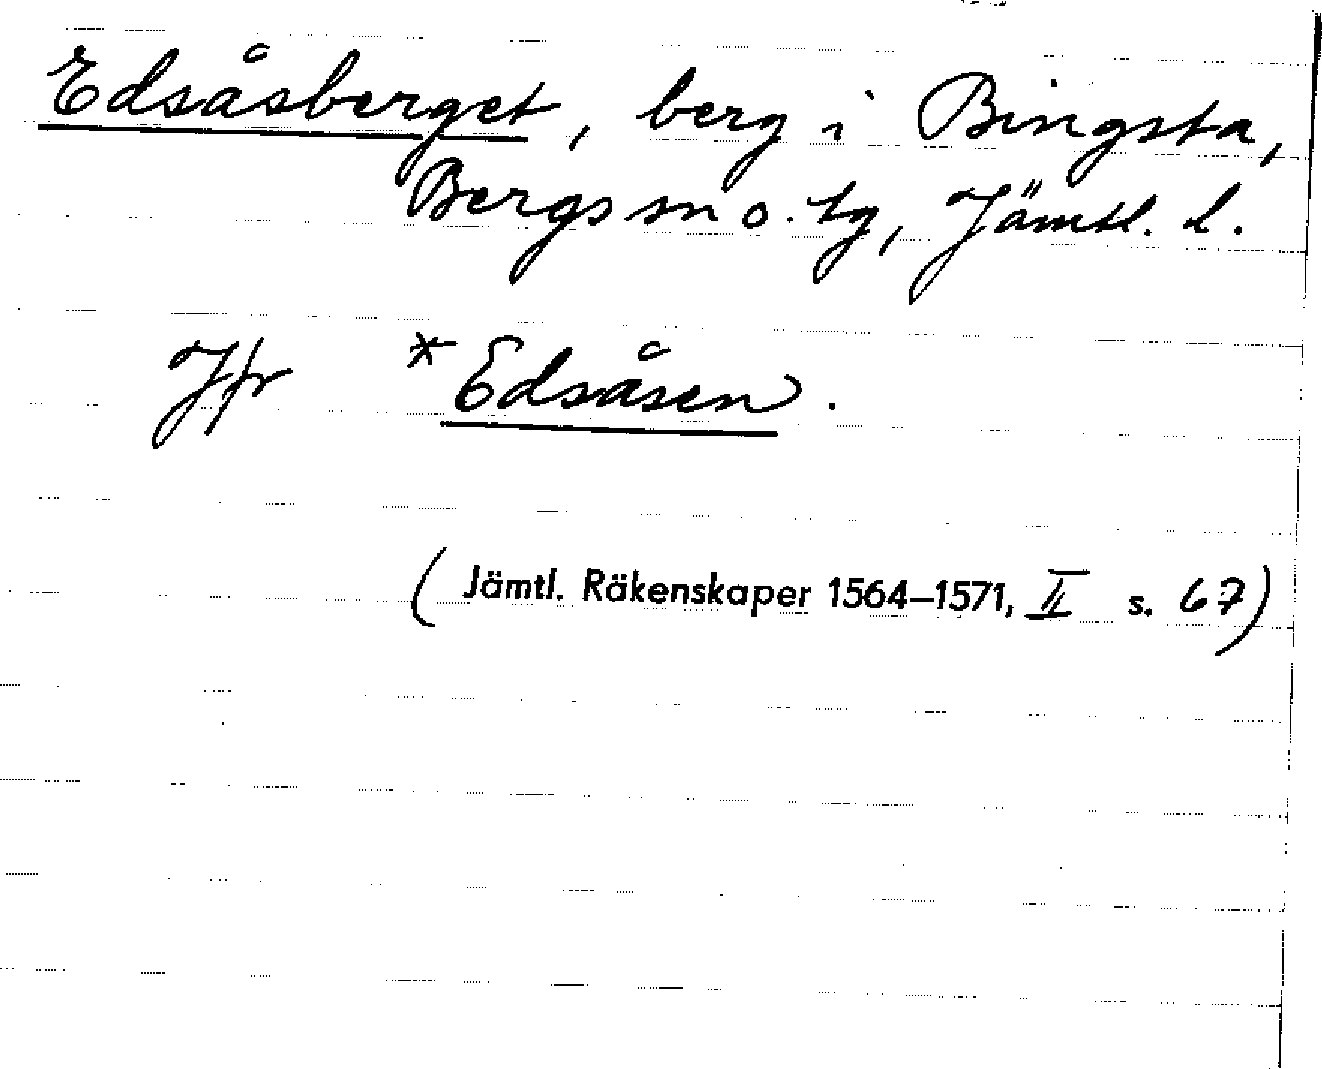 Edsåsberget, berg i Bingsta,
Bergs sn o. tg, Jämtl. l.
Jfr *Edsåsen.
(Jämtl. Räkenskaper 1564–1571, II s. 67)